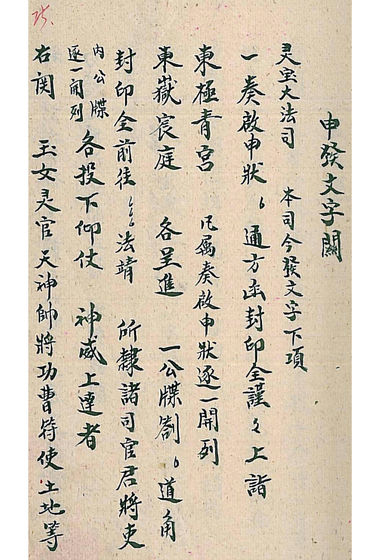 申發文字關
灵宝大法司 本司今發文字下項
一奏啟申狀〻通方函封印全謹〻上詣
東極青宮 凡属奏啟申狀逐一開列
東嶽宸庭 各呈進 一公牒劄〻道角
封印全前往〻〻法靖 所隸諸司官君將吏
内公牒
逐一開列
各投下仰仗 神威上達者
右関 玉女灵官天神帥將功曹符使土地等